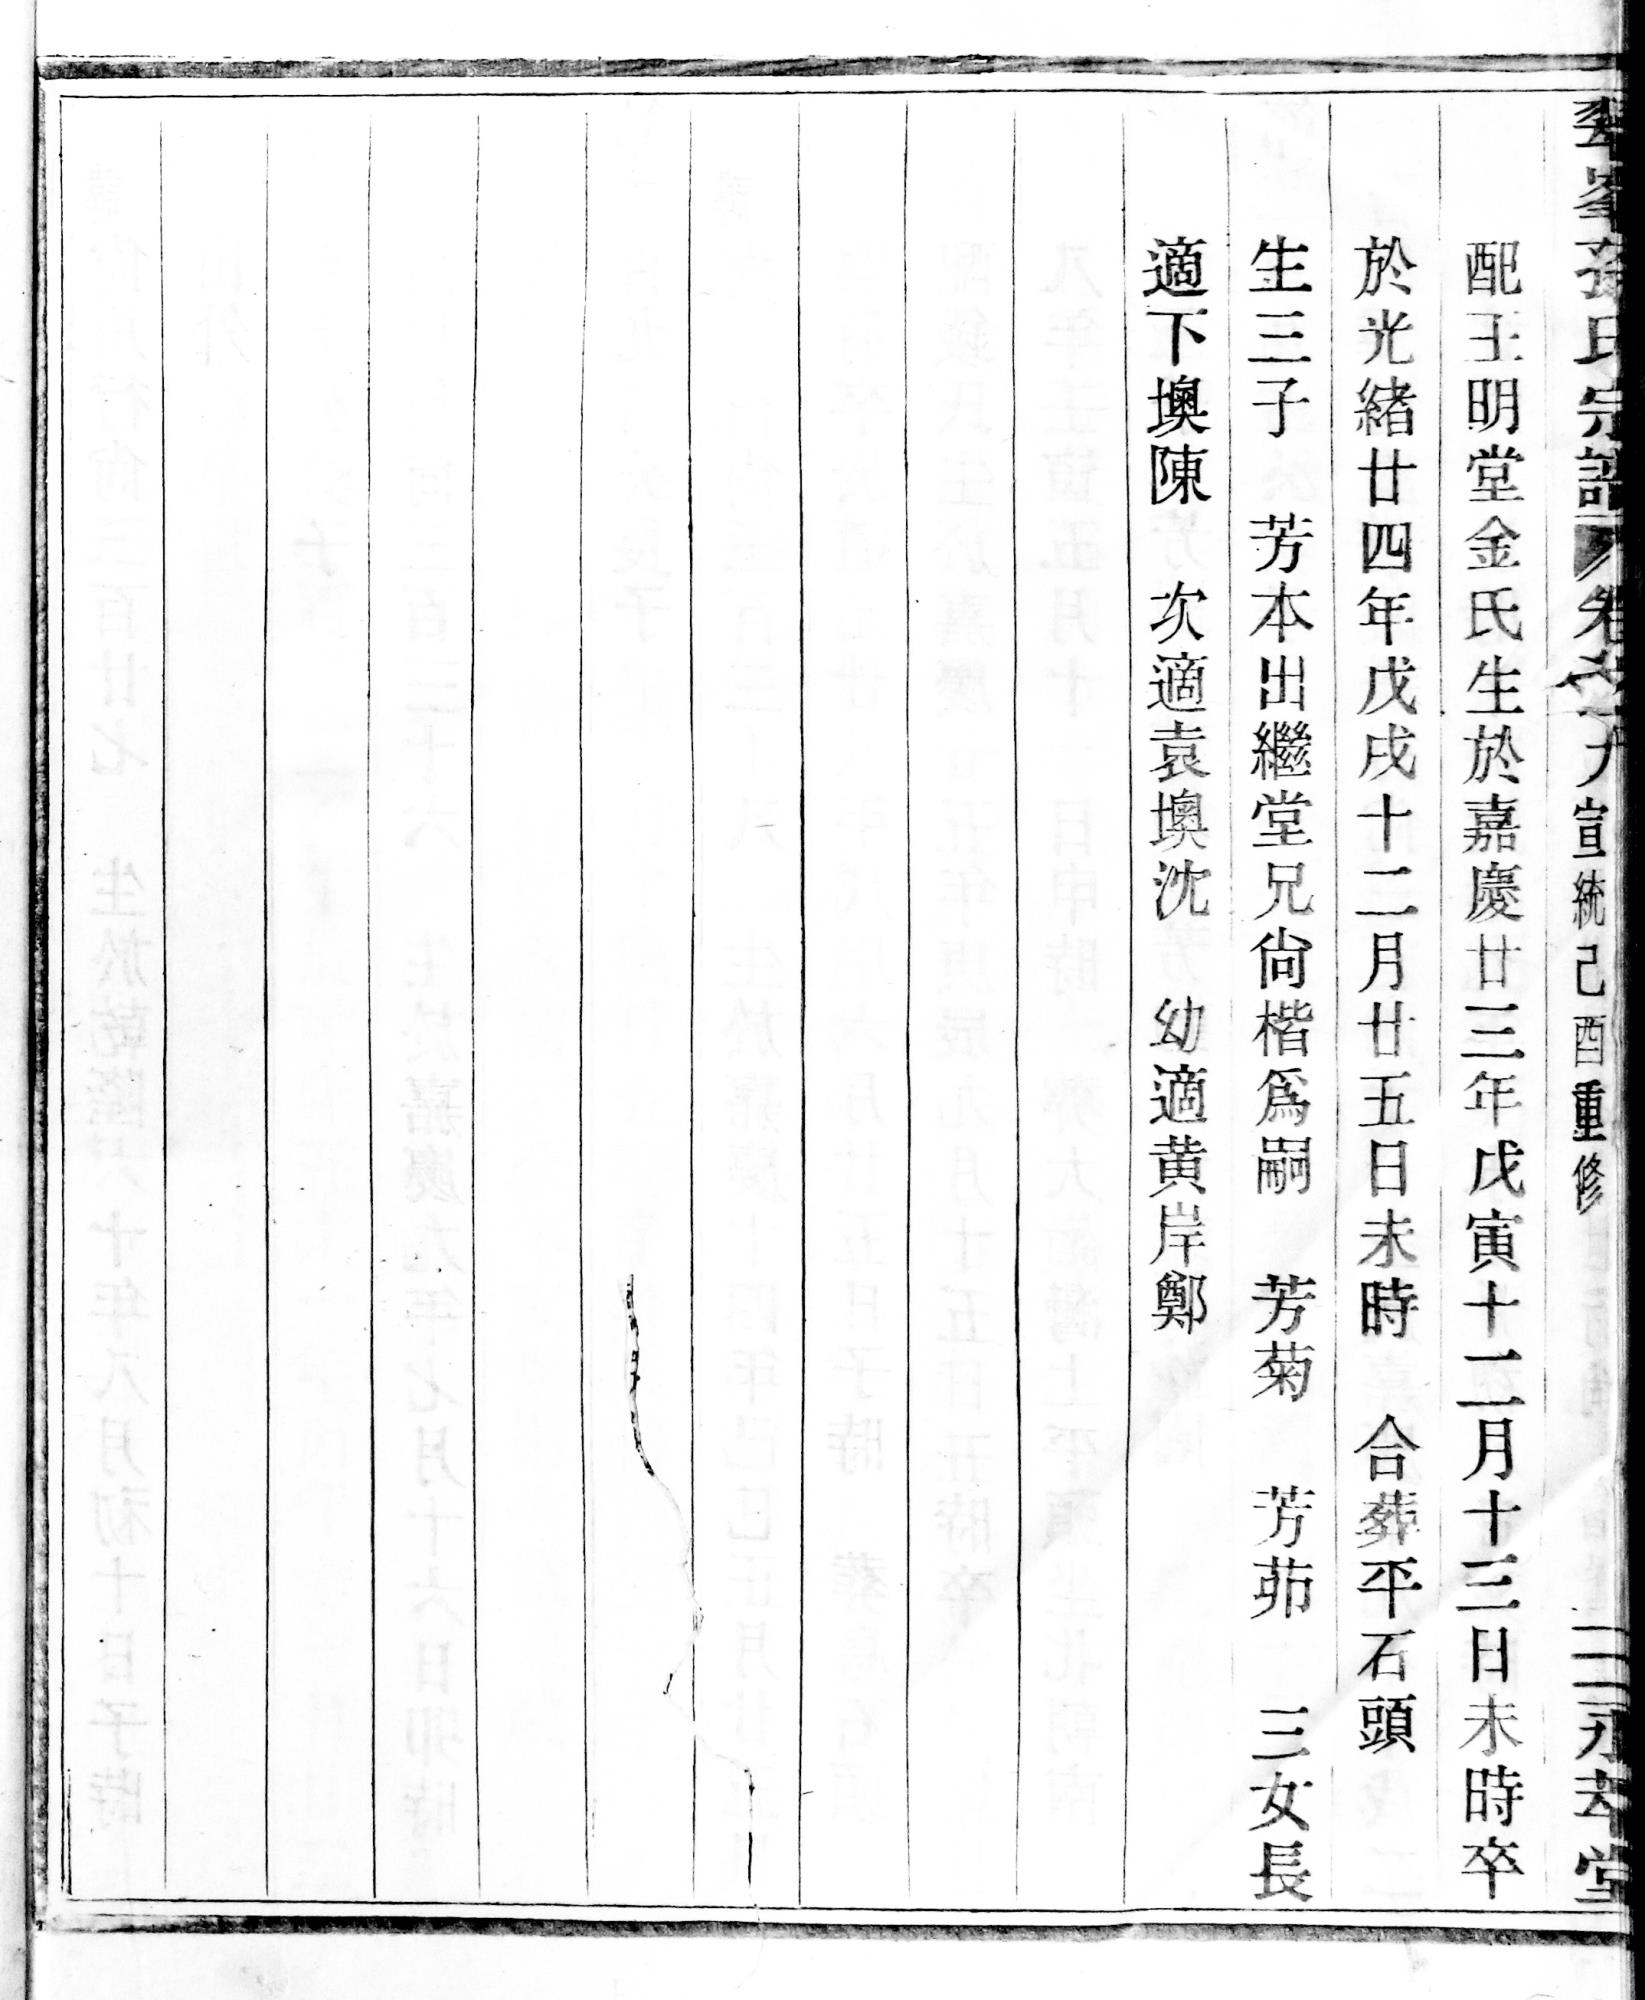 翠峯孫氏宗譜 宣統己酉重修
配王明堂金氏生於嘉慶廿三年戊寅十二月十三日未時卒
於光緒廿四年戊戌十二月廿五日未時 合葬平石頭
生三子 芳本出繼堂兄尙楷爲嗣 芳菊 芳茆 三女長
適下墺陳 次適袁墺沈 幼適黄岸鄭